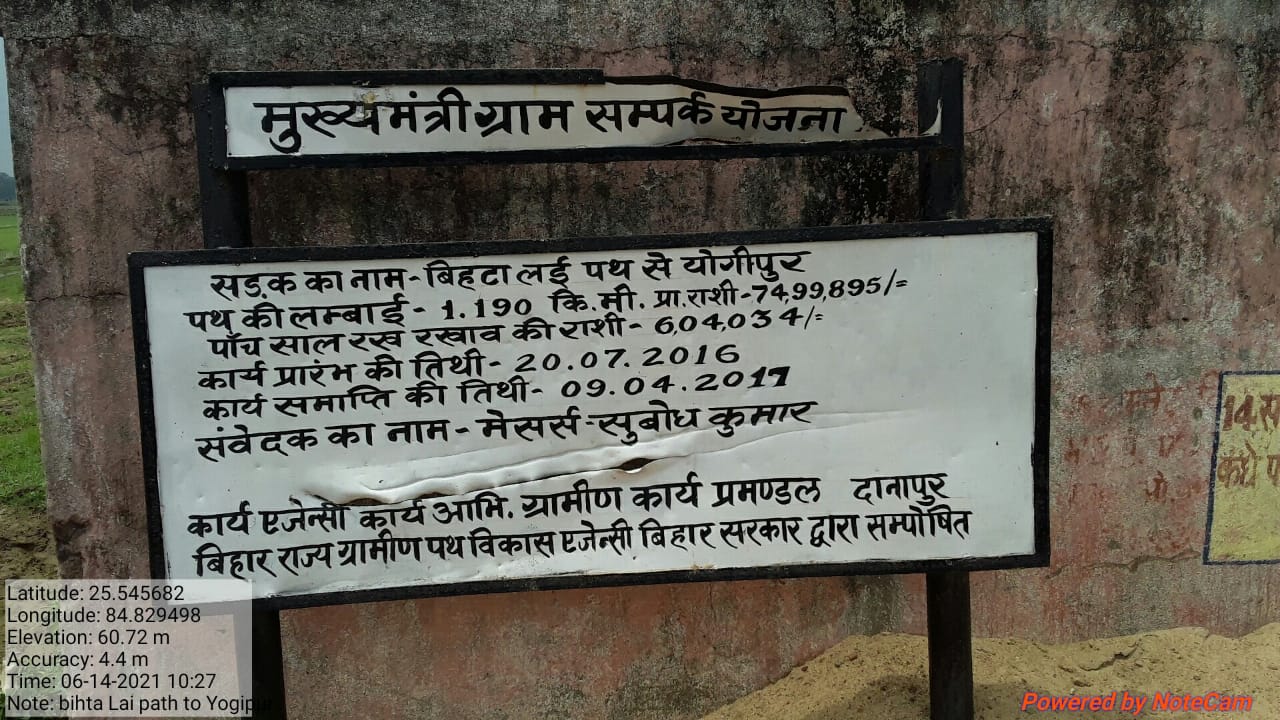 मुख्यमंत्री ग्राम सम्पर्क योजना
सड़क का नाम-बिहटा लई पथ से योगीपुर
पथ की लम्बाई- 1.190 कि.मी. प्रा.राशी-74,99,895/=
पाँच साल रख रखाव की राशी- 6,04,034/=
कार्य प्रारंभ की तिथी- 20.07.2016
कार्य समाप्ति की तिथी- 09.04.2017
संवेदक का नाम-मेसर्स-सुबोध कुमार
कार्य एजेन्सी कार्य आभि. ग्रामीण कार्य प्रमण्डल दानापुर
बिहार राज्य ग्रामीण पथ विकास एजेन्सी बिहार सरकार द्वारा सम्पोषित
14
Latitude: 25.545682
Longitude: 84.829498
Elevation: 60.72 m
Accuracy: 4.4 m
Time: 06-14-2021 10:27
Note: bihta Lai path to Yogipur
Powered by NoteCam